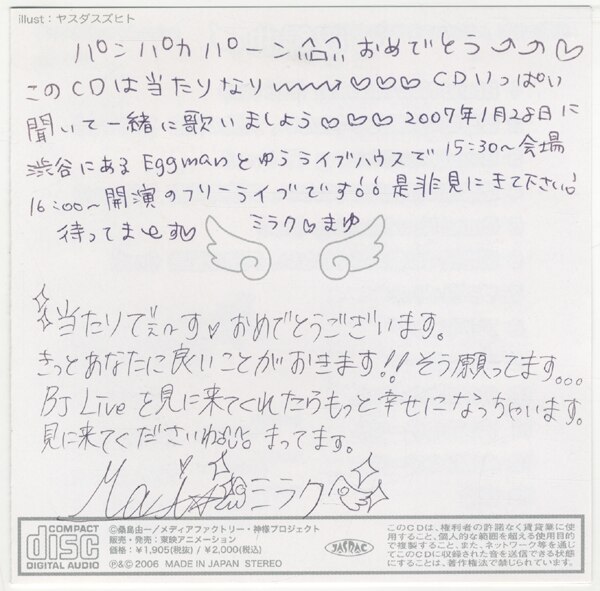 illust：ヤスダスズヒト
パンパカパーン おめでとう
このCDは当たりなり〜〜〜♡♡♡ CDいっぱい
聞いて一緒に歌いましょう♡♡♡ 2007年1月28日に
渋谷にあるEggmanとゆうライブハウスで 15:30〜会場
16:00〜開演のフリーライブです!! 是非見にきて下さい!
待ってまーす♡ ミラク♡まゆ
当たりでぇ〜す♡おめでとうございます。
きっとあなたに良いことがおきます!! そう願ってます...
BJ Liveを見に来てくれたらもっと幸せになっちゃいます。
見に来てくださいね まってます。
ミラク
COMPACT
disc
DIGITAL AUDIO
©桑島由一／メディアファクトリー・神様プロジェクト
販売・発売：東映アニメーション
価格：￥1,905(税抜)／￥2,000(税込)
Ⓟ&© 2006 MADE IN JAPAN STEREO
JASRAC
このCDは、権利者の許諾なく賃貸業に使
用すること、個人的な範囲を超える使用目的
で複製すること、また、ネットワーク等を通じ
てこのCDに収録された音を送信できる状態
にすることは、著作権法で禁じられています。